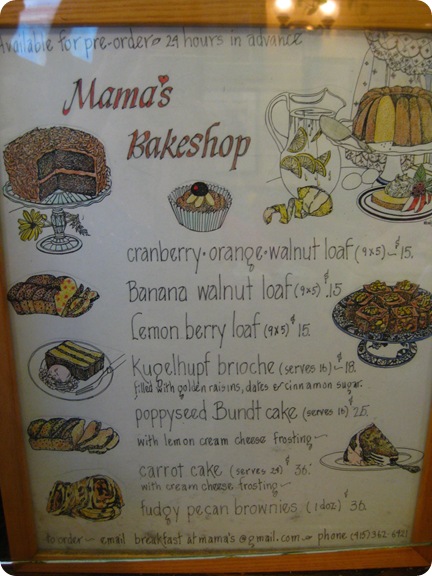 Available for pre-order 24 hours in advance
Mama's
Bakeshop
cranberry·orange·walnut loaf (9x5) – $15.
Banana walnut loaf (9x5) $15
Lemon berry loaf (9x5) $15.
Kugelhupf brioche (serves 16) – $18.
filled with golden raisins, dates & cinnamon sugar.
poppyseed Bundt cake (serves 16) $25.
with lemon cream cheese frosting –
carrot cake (serves 24) $36.
with cream cheese frosting –
fudgy pecan brownies (1 doz) $36.
to order – email breakfastatmama's@gmail.com – phone (415) 362-6421